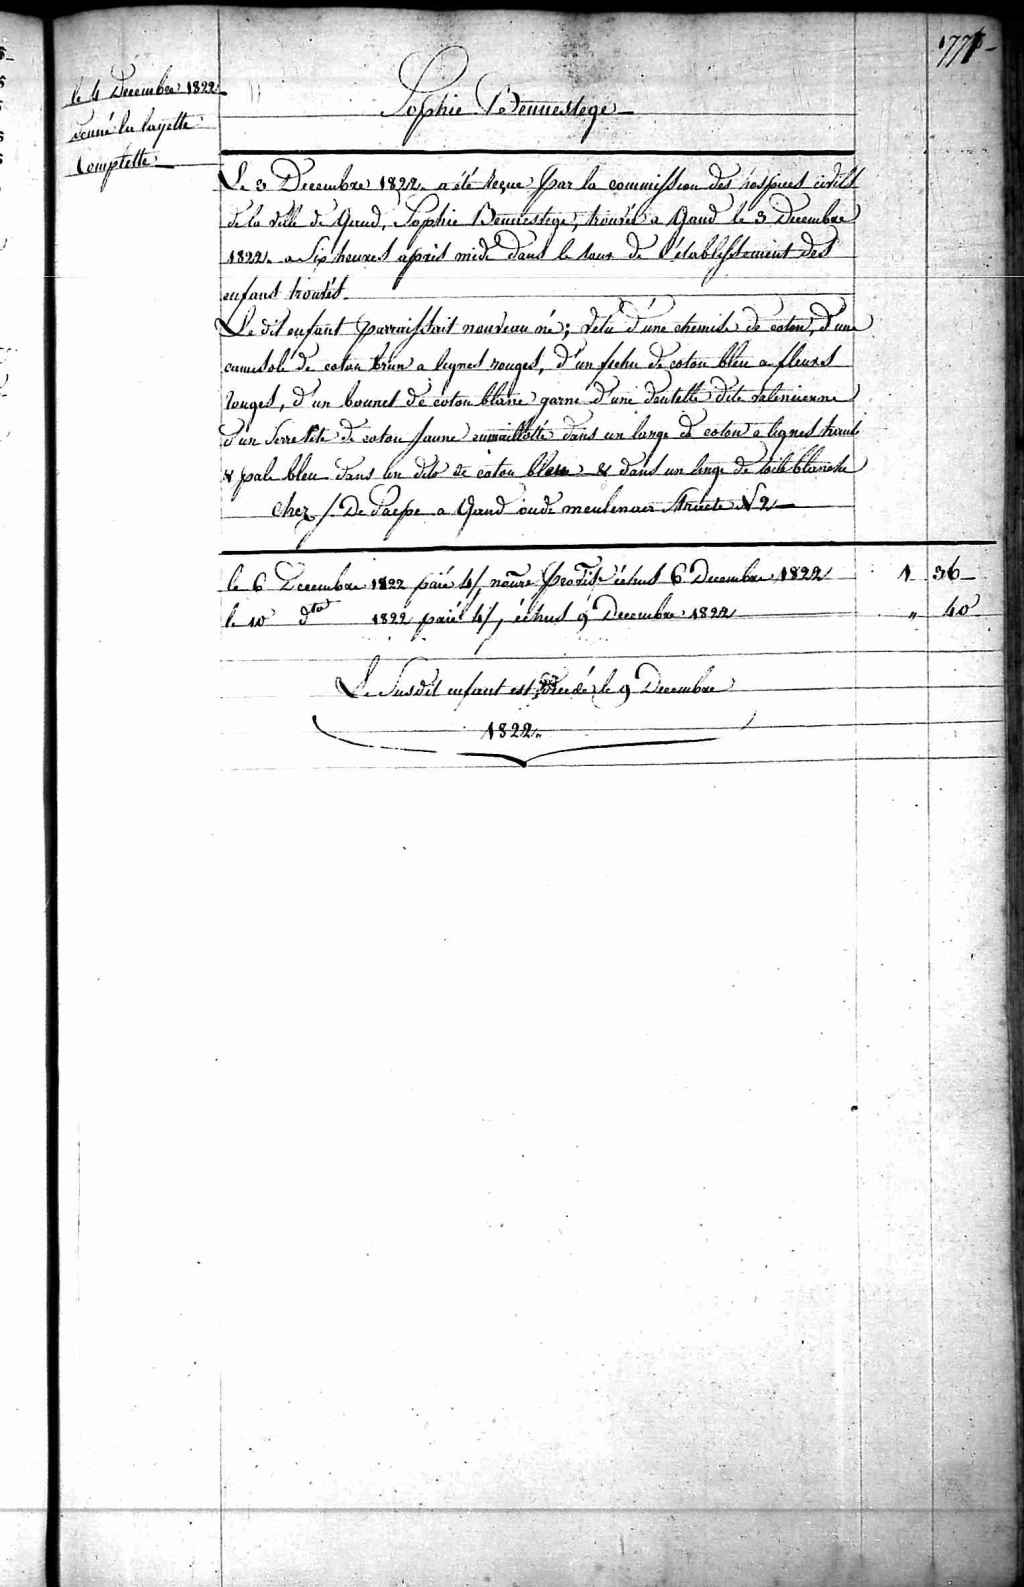 le 4 Decembre 1822
donné la layette
Complette
Sophie Bennestege
Le 3 Decembre 1822 a été reçue par la commission des hospices civils
de la ville de Gand, Sophie Bennestege, trouvée a Gand le 3 Decembre
1822 a Six heures après midi dans le tour de l'établissement des
enfans trouvés.
Le dit enfant parraissait nouveau né; vetu d'une chemise de coton, d'une
camisole de coton brun a lignes rouges, d'un fichu de coton bleu a fleurs
rouges, d'un bonnet de coton blanc garni d'une dentelle dite valencienne
d'un Serretête de coton jaune emmaillotté dans un lange de coton a lignes
& pale bleu dans un dito de coton bleu & dans un linge de toile blanche
Chez J. De Paepe a Gand oude meulenaer Straete N 2
le 6 Decembre 1822 païé échus 6 Decembre 1822 1 36
le 10 dto 1822 païé échus 9 Decembre 1822 " 40
Le Susdit enfant est décedé le 9 Decembre
1822.